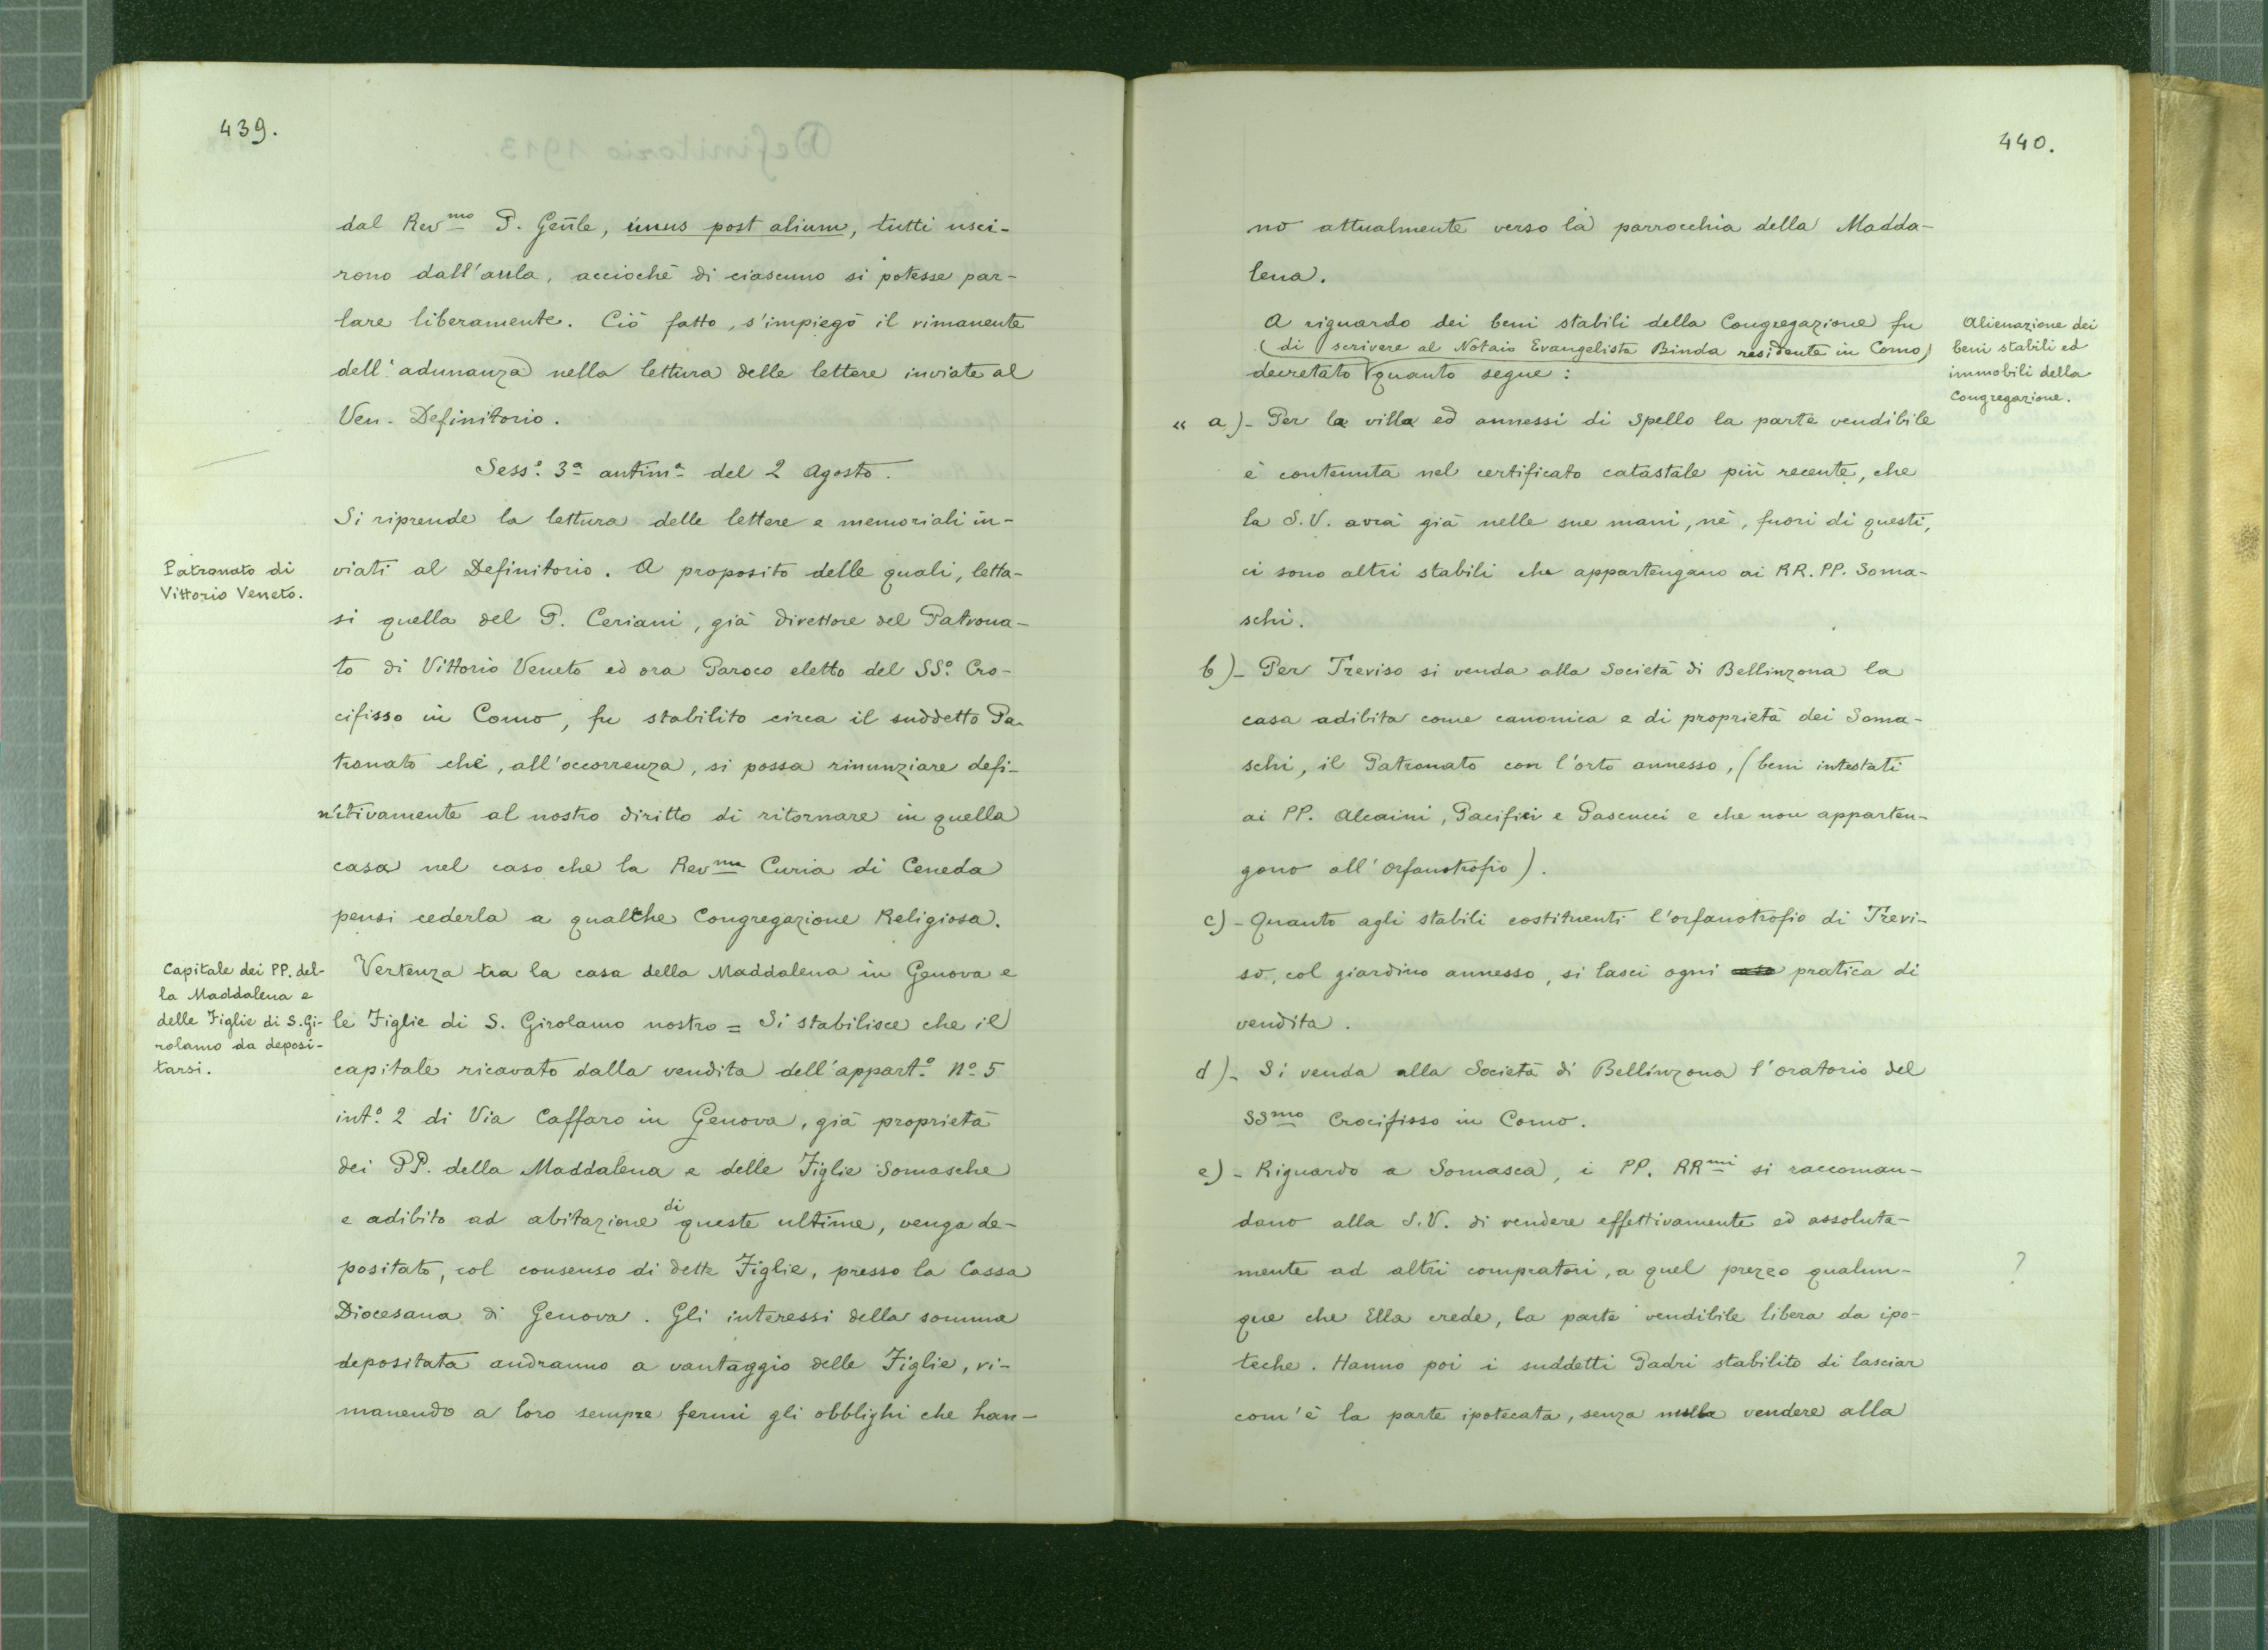 439.
dal Rev.mo P. Gentile, unus post alium, tutti usci-
rono dall'aula, acciochè di ciascuno si potesse par-
lare liberamente. Ciò fatto, s'impiegò il rimanente
dell'adunanza nella lettura delle lettere inviate al
Ven. Definitorio.
Sess.e 3a antim.a del 2 Agosto.
Si riprende la lettura delle lettere e memoriali in-
Patronato di
Vittorio Veneto.
viati al Definitorio. A proposito delle quali, letta-
si quella del P. Ceriani, già direttore del Patrona-
to di Vittorio Veneto ed ora Paroco eletto del SS.o Cro-
cifisso in Como, fu stabilito circa il suddetto Pa-
tronato che, all'occorrenza, si possa rinunziare defi-
nitivamente al nostro diritto di ritornare in quella
casa nel caso che la Rev.ma Curia di Ceneda
pensi cederla a qualche Congregazione Religiosa.
Capitale dei PP. del-
la Maddalena e
delle Figlie di S. Gi-
rolamo da deposi-
tarsi.
Vertenza tra la casa della Maddalena in Genova e
le Figlie di S. Girolamo nostro = Si stabilisce che il
capitale ricavato dalla vendita dell'appart.o No 5
int.o 2 di Via Caffaro in Genova, già proprietà
dei PP. della Maddalena e delle Figlie Somasche
e adibito ad abitazione di queste ultime, venga de-
positato, col consenso di dette Figlie, presso la Cassa
Diocesana di Genova. Gli interessi della somma
depositata andranno a vantaggio delle Figlie, ri-
manendo a loro sempre fermi gli obblighi che han-
440.
no attualmente verso la parrocchia della Madda-
lena.
Alienazione dei
beni stabili ed
immobili della
Congregazione.
A riguardo dei beni stabili della Congregazione fu
(di scrivere al Notaio Evangelista Binda residente in Como)
decretato quanto segue:
« a)- Per la villa ed annessi di Spello la parte vendibile
è contenuta nel certificato catastale più recente, che
la S.V. avrà già nelle sue mani, nè, fuori di questi,
ci sono altri stabili che appartengano ai RR. PP. Soma-
schi.
b)- Per Treviso si venda alla Società di Bellinzona la
casa adibita come canonica e di proprietà dei Soma-
schi, il Patronato con l'orto annesso, (beni intestati
ai PP. Alcaini, Pacifici e Pascucci e che non apparten-
gono all'Orfanotrofio).
c)- Quanto agli stabili costituenti l'orfanotrofio di Trevi-
so, col giardino annesso, si lasci ogni pratica di
vendita.
d)- Si venda alla Società di Bellinzona l'oratorio del
SSmo Crocifisso in Como.
e)- Riguardo a Somasca, i PP. RRmi si raccoman-
dano alla S.V. di vendere effettivamente ed assoluta-
mente ad altri compratori, a quel prezzo qualun-
?
que che Ella crede, la parte vendibile libera da ipo-
teche. Hanno poi i suddetti Padri stabilito di lasciar
com'è la parte ipotecata, senza nulla vendere alla